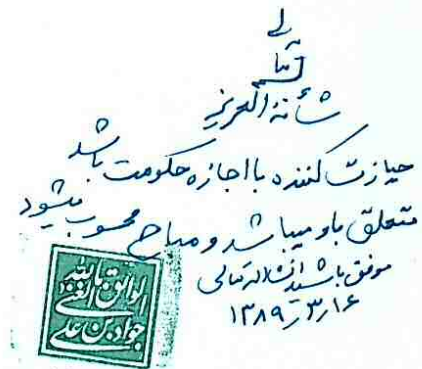 تعالی
شأنه العزیز
حیازت کننده با اجازه حکومت باشد
متعلق باو میباشد و مباح محسوب میشود
موفق باشید انشاءالله تعالی
۱۳۸۹ر۳ر۱۶
الواثق بالله
الغنی
جواد بن علی